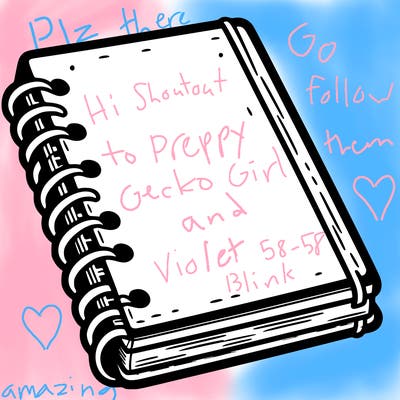 Plz there
Go
follow
them
Hi Shoutout
to Preppy
Gecko Girl
and
Violet 58-58
Blink
amazing